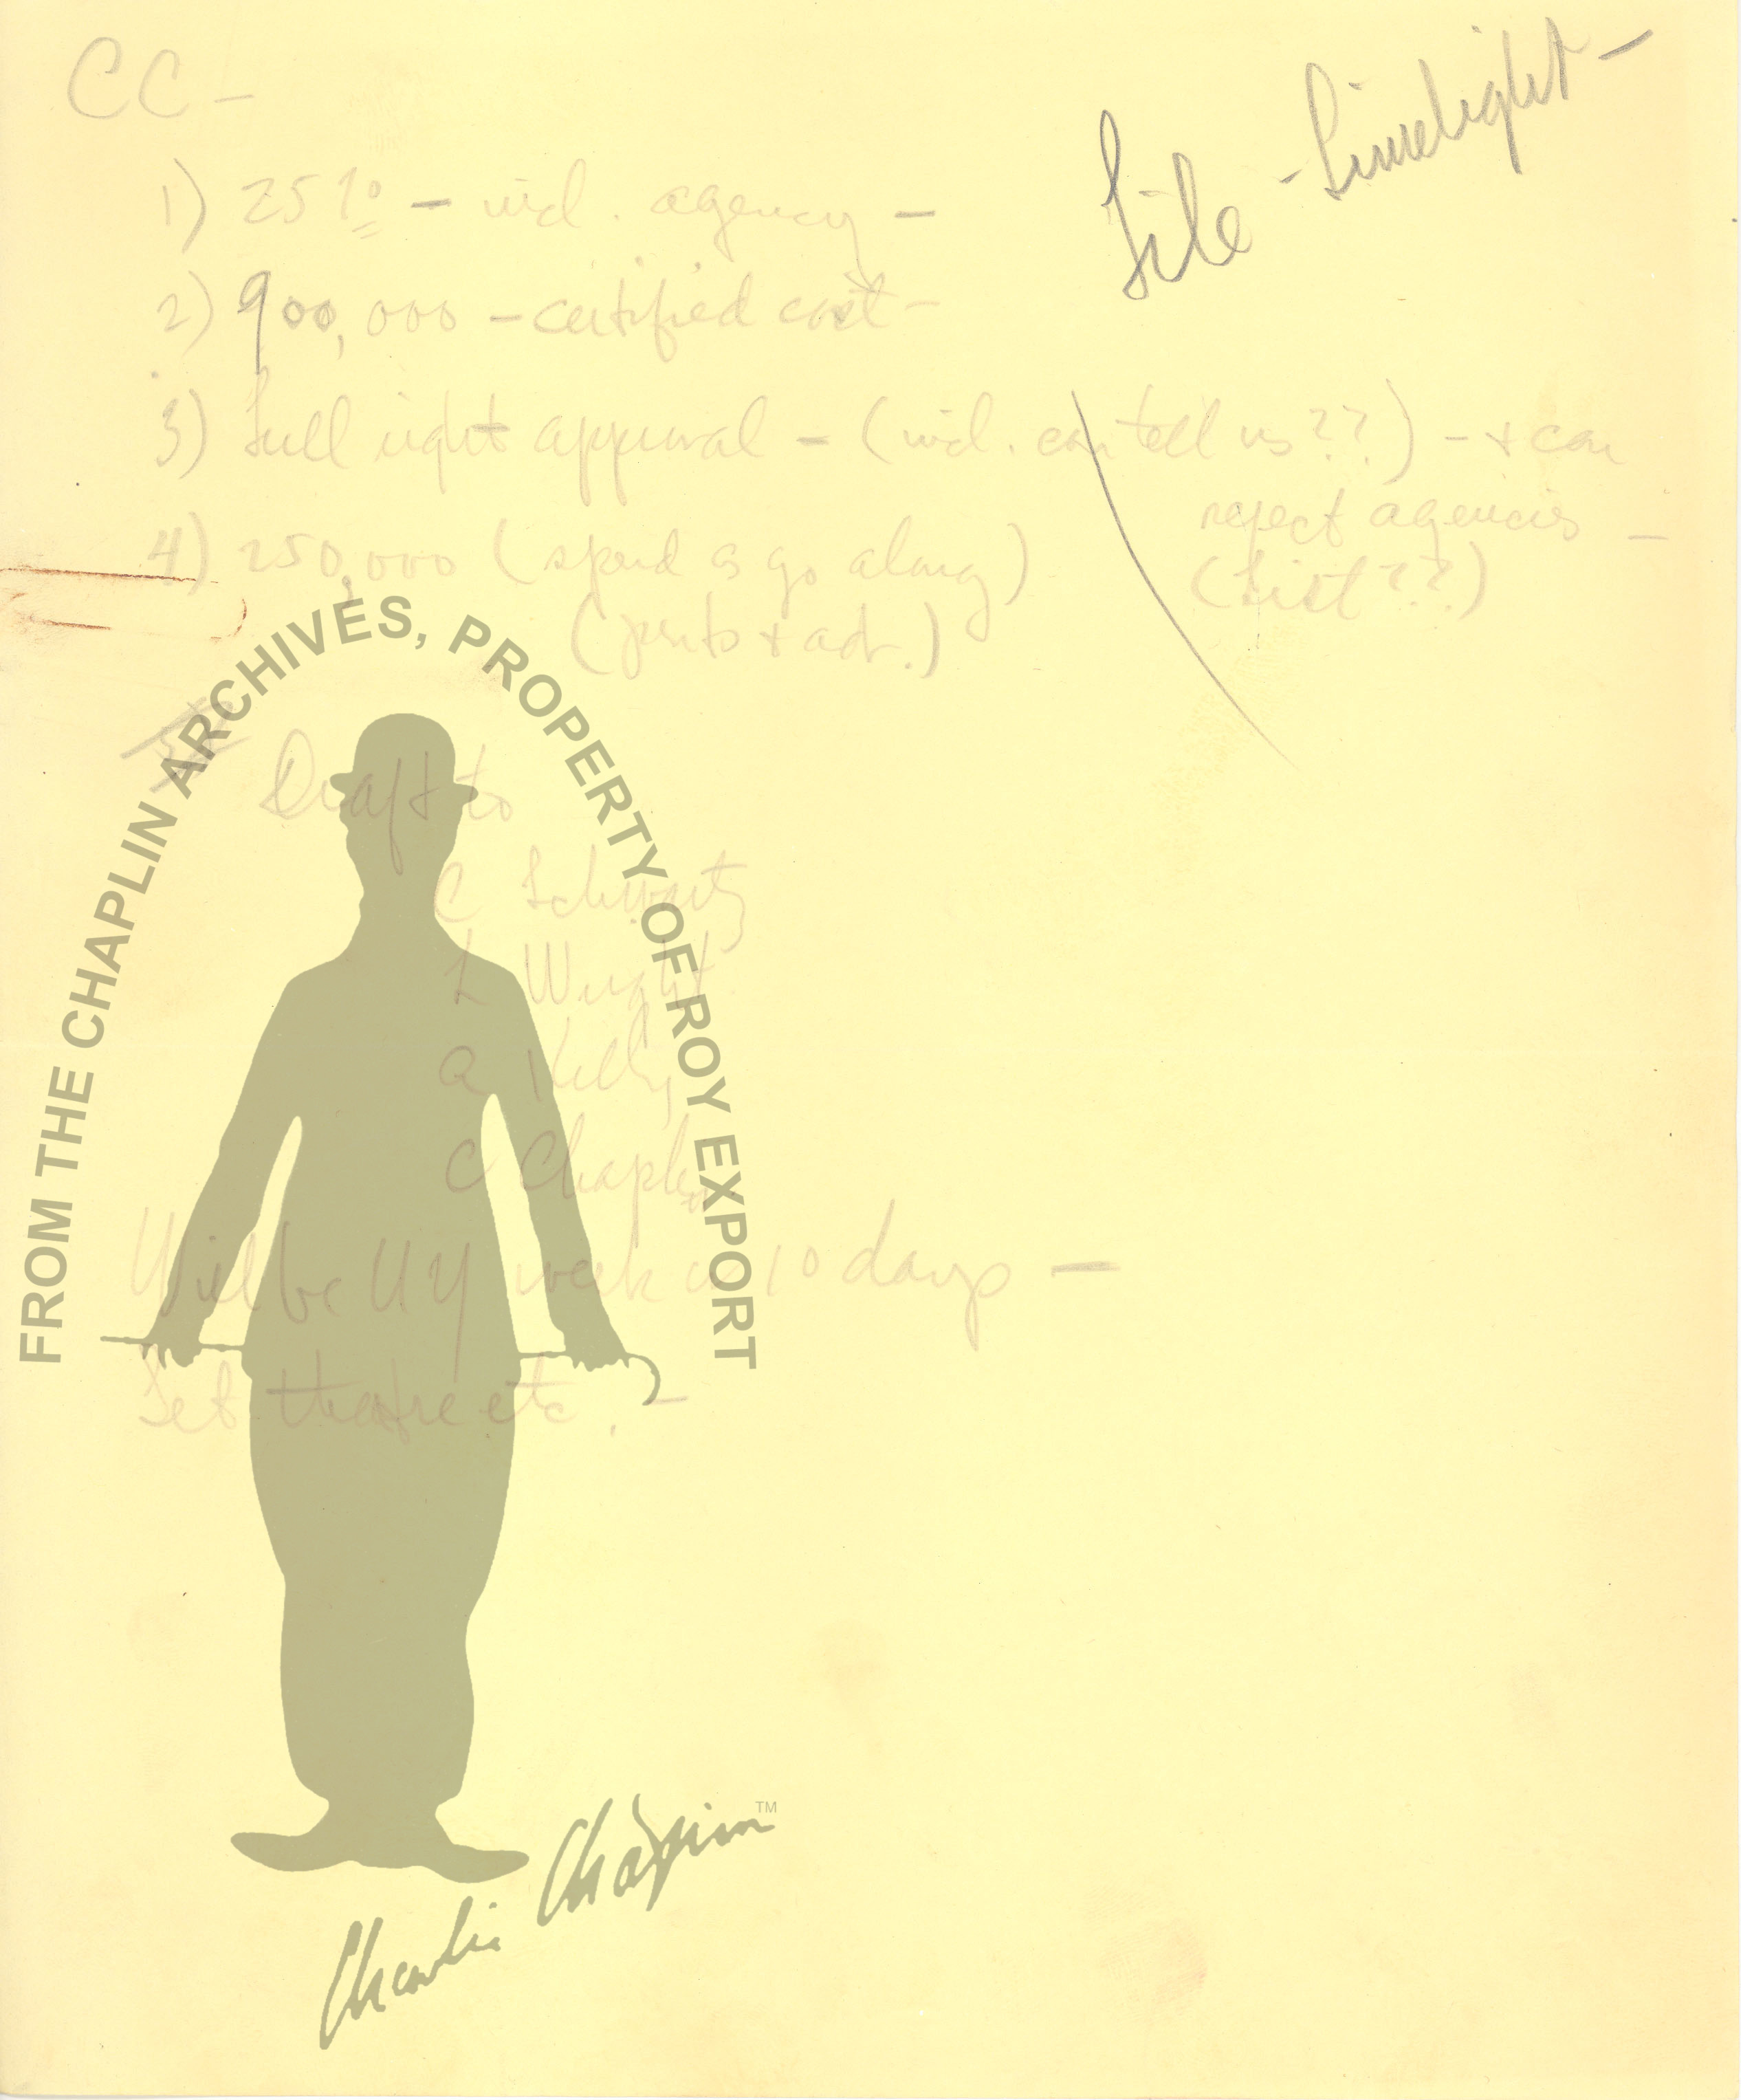 CC -
File - Limelight -
1) 25% - incl. agency -
2) 900,000 - certified cost -
3) Full right approval - (incl. can tell us??) - + can
reject agencies -
(List??)
4) 250,000 (spend as go along)
(prints + adv.)
Draft to
C Schwartz
L Wright
A Kelly
C Chaplin
Will be NY week or 10 days -
Set theatre etc. -
FROM THE CHAPLIN ARCHIVES, PROPERTY OF ROY EXPORT
Charlie Chaplin™